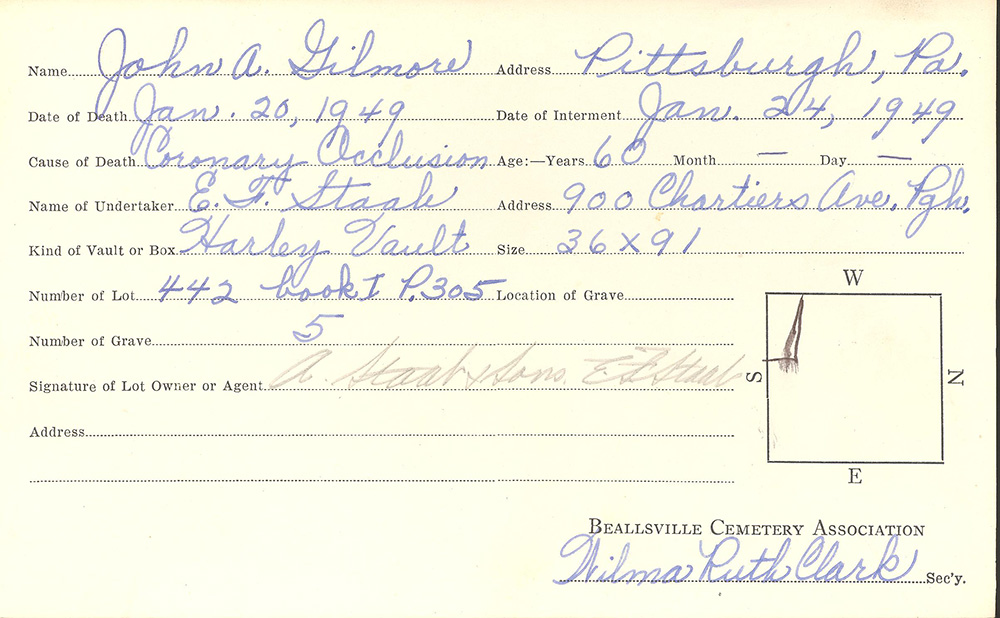 Name John A. Gilmore Address Pittsburgh, Pa.
Date of Death Jan. 20, 1949 Date of Interment Jan. 24, 1949
Cause of Death Coronary Occlusion Age:—Years 60 Month — Day —
Name of Undertaker E. F. Staab Address 900 Chartiers Ave, Pgh.
Kind of Vault or Box Harley Vault Size 36 x 91
Number of Lot 442 book I P. 305 Location of Grave
Number of Grave 5
Signature of Lot Owner or Agent A. Staab & Sons. E. F. Staab
Address
W
S
N
E
BEALLSVILLE CEMETERY ASSOCIATION
Wilma Ruth Clark Sec'y.